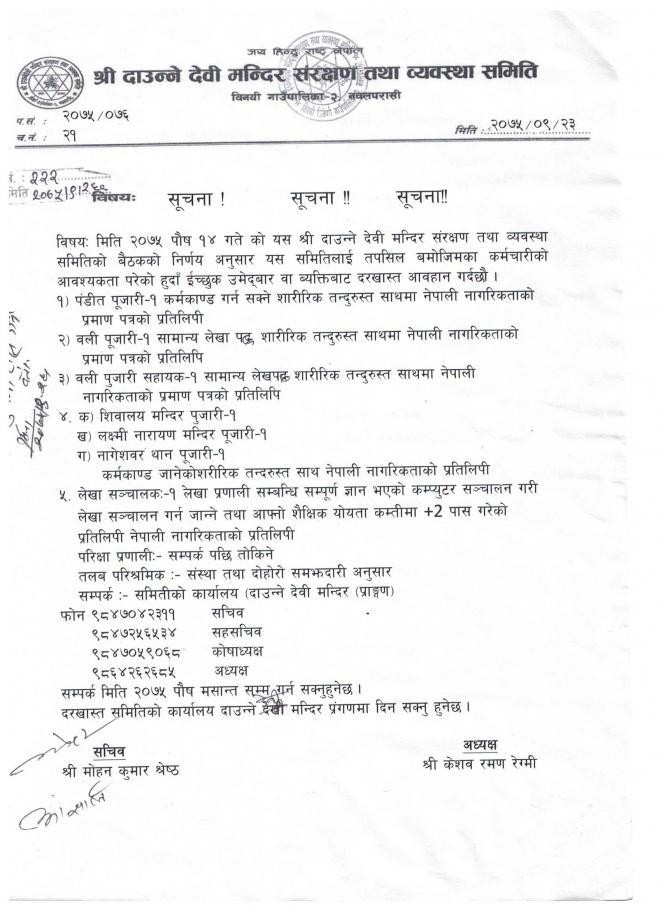 जय हिन्दु राष्ट्र नेपाल
श्री दाउन्ने देवी मन्दिर संरक्षण तथा व्यवस्था समिति
विनयी गाउँपालिका-२, नवलपरासी
प.सं. : २०७५/०७६
च.नं. : २१
मिति : २०७५/०९/२३
नं. : २२२
मिति
विषयः सूचना ! सूचना !! सूचना!!
विषयः मिति २०७५ पौष १४ गते को यस श्री दाउन्ने देवी मन्दिर संरक्षण तथा व्यवस्था
समितिको बैठकको निर्णय अनुसार यस समितिलाई तपसिल बमोजिमका कर्मचारीको
आवश्यकता परेको हुदाँ ईच्छुक उमेद्बार वा ब्यक्तिबाट दरखास्त आवहान गर्दछौ ।
१) पंडीत पूजारी-१ कर्मकाण्ड गर्न सक्ने शारीरिक तन्दुरुस्त साथमा नेपाली नागरिकताको
प्रमाण पत्रको प्रतिलिपी
२) वली पूजारी-१ सामान्य लेखा पढ्न शारीरिक तन्दुरुस्त साथमा नेपाली नागरिकताको
प्रमाण पत्रको प्रतिलिपि
३) वली पुजारी सहायक-१ सामान्य लेखपढ्न शारीरिक तन्दुरुस्त साथमा नेपाली
नागरिकताको प्रमाण पत्रको प्रतिलिपि
४. क) शिवालय मन्दिर पुजारी-१
ख) लक्ष्मी नारायण मन्दिर पूजारी-१
ग) नागेशवर थान पूजारी-१
कर्मकाण्ड जानेकोशरीरिक तन्दरुस्त साथ नेपाली नागरिकताको प्रतिलिपी
५. लेखा सञ्चालकः-१ लेखा प्रणाली सम्बन्धि सम्पूर्ण ज्ञान भएको कम्प्युटर सञ्चालन गरी
लेखा सञ्चालन गर्न जान्ने तथा आफ्नो शैक्षिक योयता कम्तीमा +2 पास गरेको
प्रतिलिपी नेपाली नागरिकताको प्रतिलिपी
परिक्षा प्रणालीः- सम्पर्क पछि तोकिने
तलब परिश्रमिक :- संस्था तथा दोहोरो समझदारी अनुसार
सम्पर्क :- समितीको कार्यालय (दाउन्ने देवी मन्दिर (प्राङ्गण)
फोन ९८४७०४२३११ सचिव
९८४७२५६५३४ सहसचिव
९८४७०५९०६८ कोषाध्यक्ष
९८६४२६२६८५ अध्यक्ष
सम्पर्क मिति २०७५ पौष मसान्त सम्म गर्न सक्नुहुनेछ ।
दरखास्त समितिको कार्यालय दाउन्ने देवी मन्दिर प्रंगणमा दिन सक्नु हुनेछ ।
सचिव
श्री मोहन कुमार श्रेष्ठ
अध्यक्ष
श्री केशव रमण रेग्मी